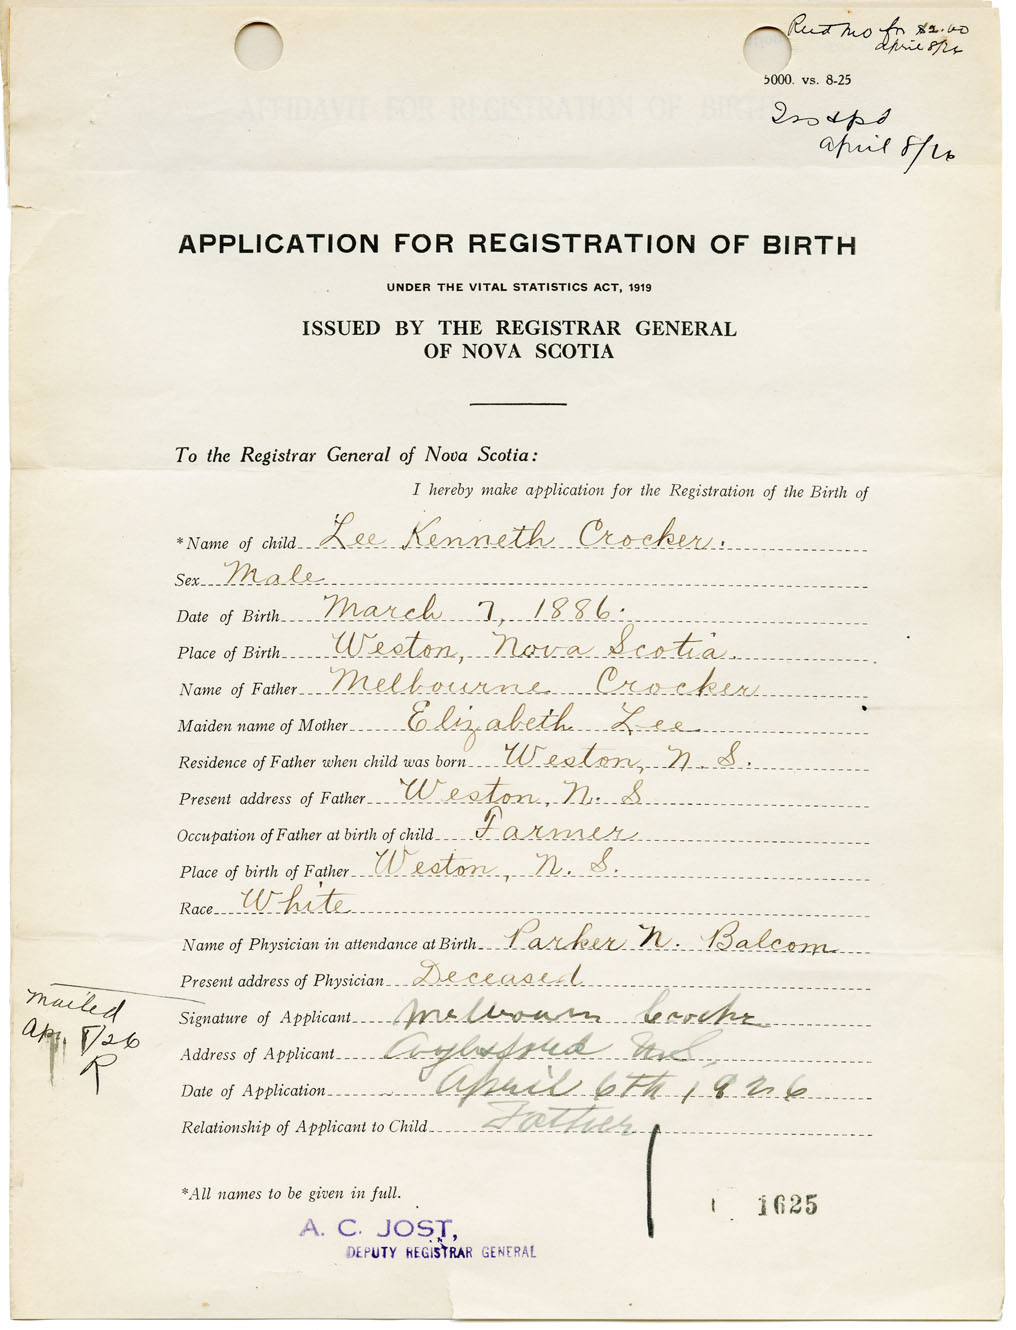 Recd MO for $2.00
april 8/26
5000. vs. 8-25
april 8/26
APPLICATION FOR REGISTRATION OF BIRTH
UNDER THE VITAL STATISTICS ACT, 1919
ISSUED BY THE REGISTRAR GENERAL
OF NOVA SCOTIA
To the Registrar General of Nova Scotia:
I hereby make application for the Registration of the Birth of
*Name of child Lee Kenneth Crocker.
Sex Male
Date of Birth March 7, 1886.
Place of Birth Weston, Nova Scotia.
Name of Father Melbourne Crocker
Maiden name of Mother Elizabeth Lee
Residence of Father when child was born Weston, N. S.
Present address of Father Weston, N. S
Occupation of Father at birth of child Farmer
Place of birth of Father Weston, N. S.
Race White
Name of Physician in attendance at Birth Parker N. Balcom
Present address of Physician Deceased
mailed
Signature of Applicant Melbourn Crocker
Apr. 8/26
R
Address of Applicant Aylesford N.S.
Date of Application April 6th 1926
Relationship of Applicant to Child Father
*All names to be given in full.
1625
A. C. JOST,
DEPUTY REGISTRAR GENERAL